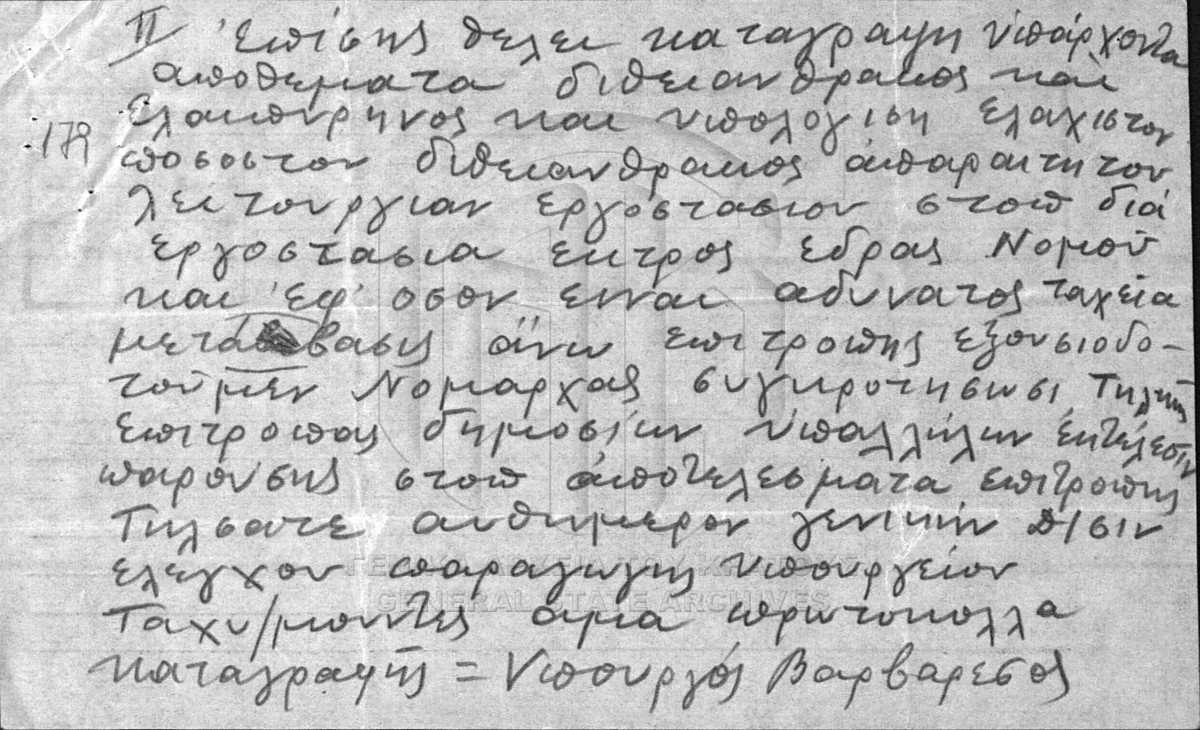 II Επίσης θελει καταγραψη υπάρχοντα
αποθεματα διθειανθρακος και
ελαιοπυρηνος και υπολογιση ελαχιστον
179 ποσοστον διθειανθρακος απαραιτητον
λειτουργιαν εργοστασιον στοπ διά
εργοστασια εκτρος εδρας Νομού
και 'εφ' οσον ειναι αδυνατος ταχεία
μετάβασις άνω επιτροπης εξουσιοδο-
τούμεν Νομαρχας συγκροτησωσι Τηλκής
επιτροπας δημοσίων υπαλλήλων εκτέλεσιν
παρουσης στοπ αποτελεσματα επιτροπης
Τηλσατε αυθημερον γενικήν Δ/σιν
ελεγχου παραγωγης υπουργείον
Ταχυ/μουντες αμα πρωτοκολλα
καταγραφής = Υπουργός Βαρβαρεσος
ΓΕΝΙΚΑ ΑΡΧΕΙΑ ΤΟΥ ΚΡΑΤΟΥΣ
GENERAL STATE ARCHIVES